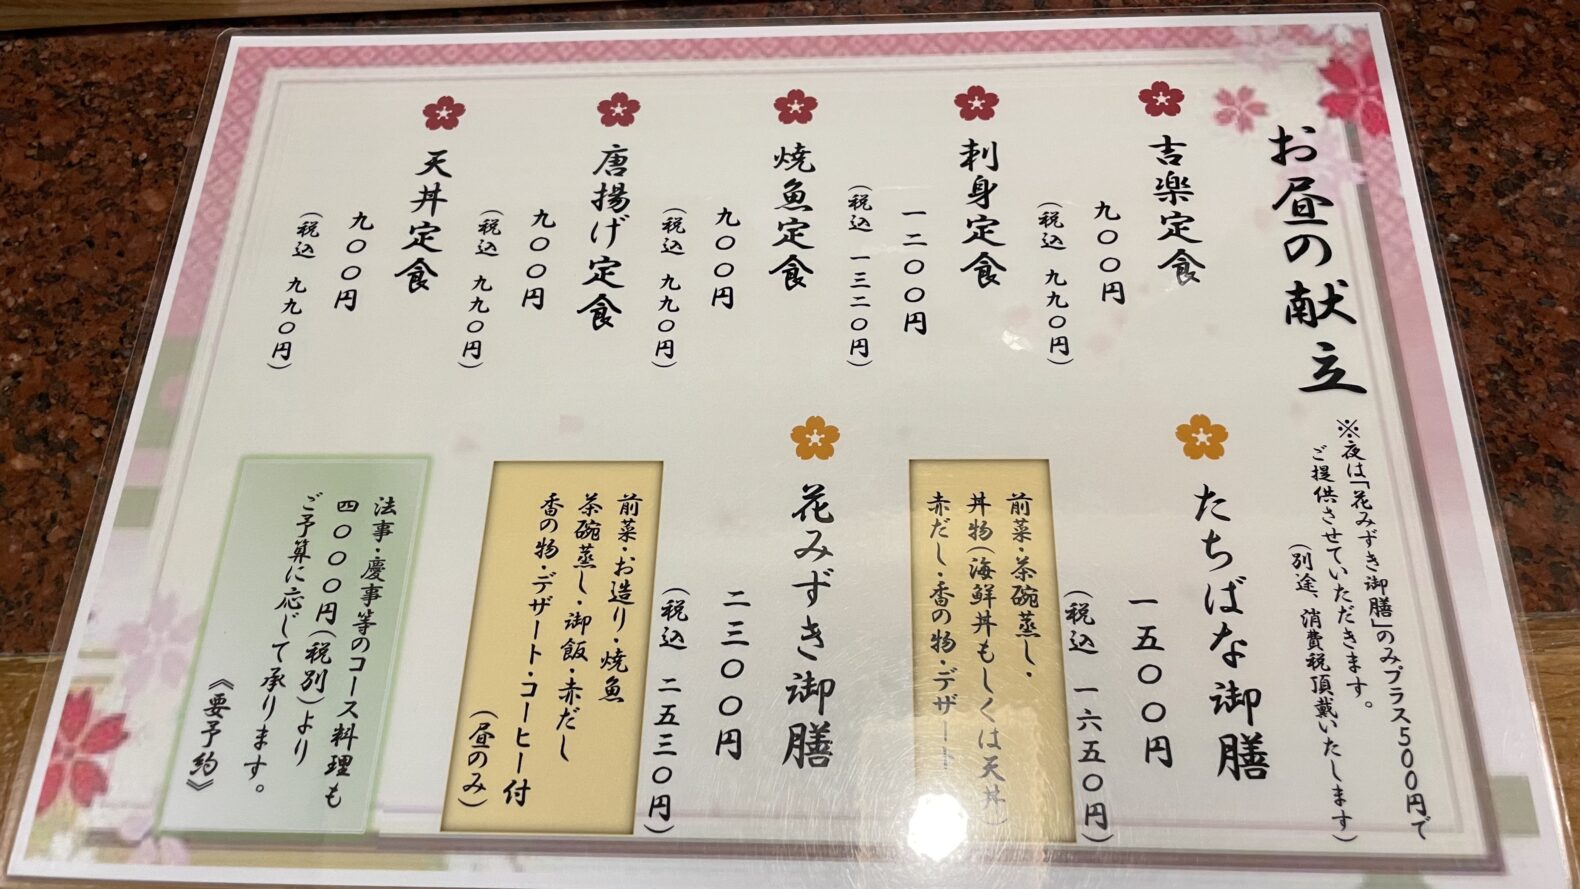 お昼の献立
※夜は「花みずき御膳」のみプラス500円で
ご提供させていただきます。
(別途、消費税頂戴いたします)
吉楽定食
九〇〇円
(税込 九九〇円)
刺身定食
一二〇〇円
(税込 一三二〇円)
焼魚定食
九〇〇円
(税込 九九〇円)
唐揚げ定食
九〇〇円
(税込 九九〇円)
天丼定食
九〇〇円
(税込 九九〇円)
たちばな御膳
一五〇〇円
(税込 一六五〇円)
前菜・茶碗蒸し・
丼物(海鮮丼もしくは天丼)
赤だし・香の物・デザート
花みずき御膳
二三〇〇円
(税込 二五三〇円)
前菜・お造り・焼魚
茶碗蒸し・御飯・赤だし
香の物・デザート・コーヒー付
(昼のみ)
法事・慶事等のコース料理も
四〇〇〇円(税別)より
ご予算に応じて承ります。
《要予約》